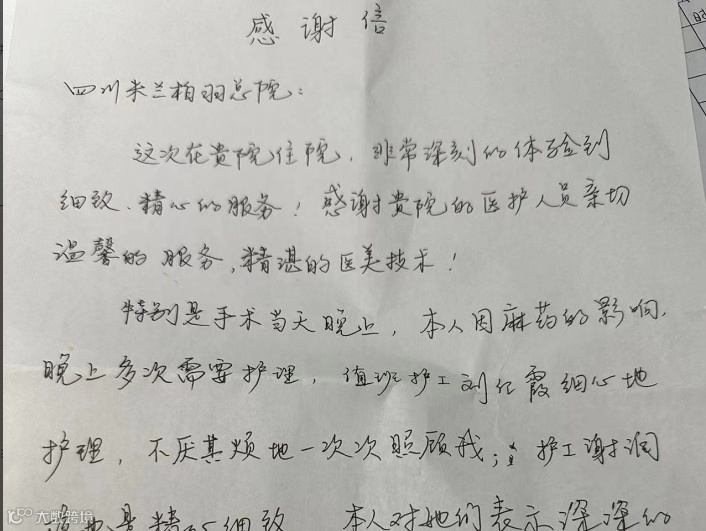 感谢信
四川米兰柏羽总院：
这次在贵院住院，非常深刻的体验到
细致、精心的服务！感谢贵院的医护人员亲切
温馨的服务，精湛的医美技术！
特别是手术当天晚上，本人因麻药的影响，
晚上多次需要护理，值班护工刘仁霞细心地
护理，不厌其烦地一次次照顾我；护工谢润
是精心细致 本人对她们表示深深的
大数跨境